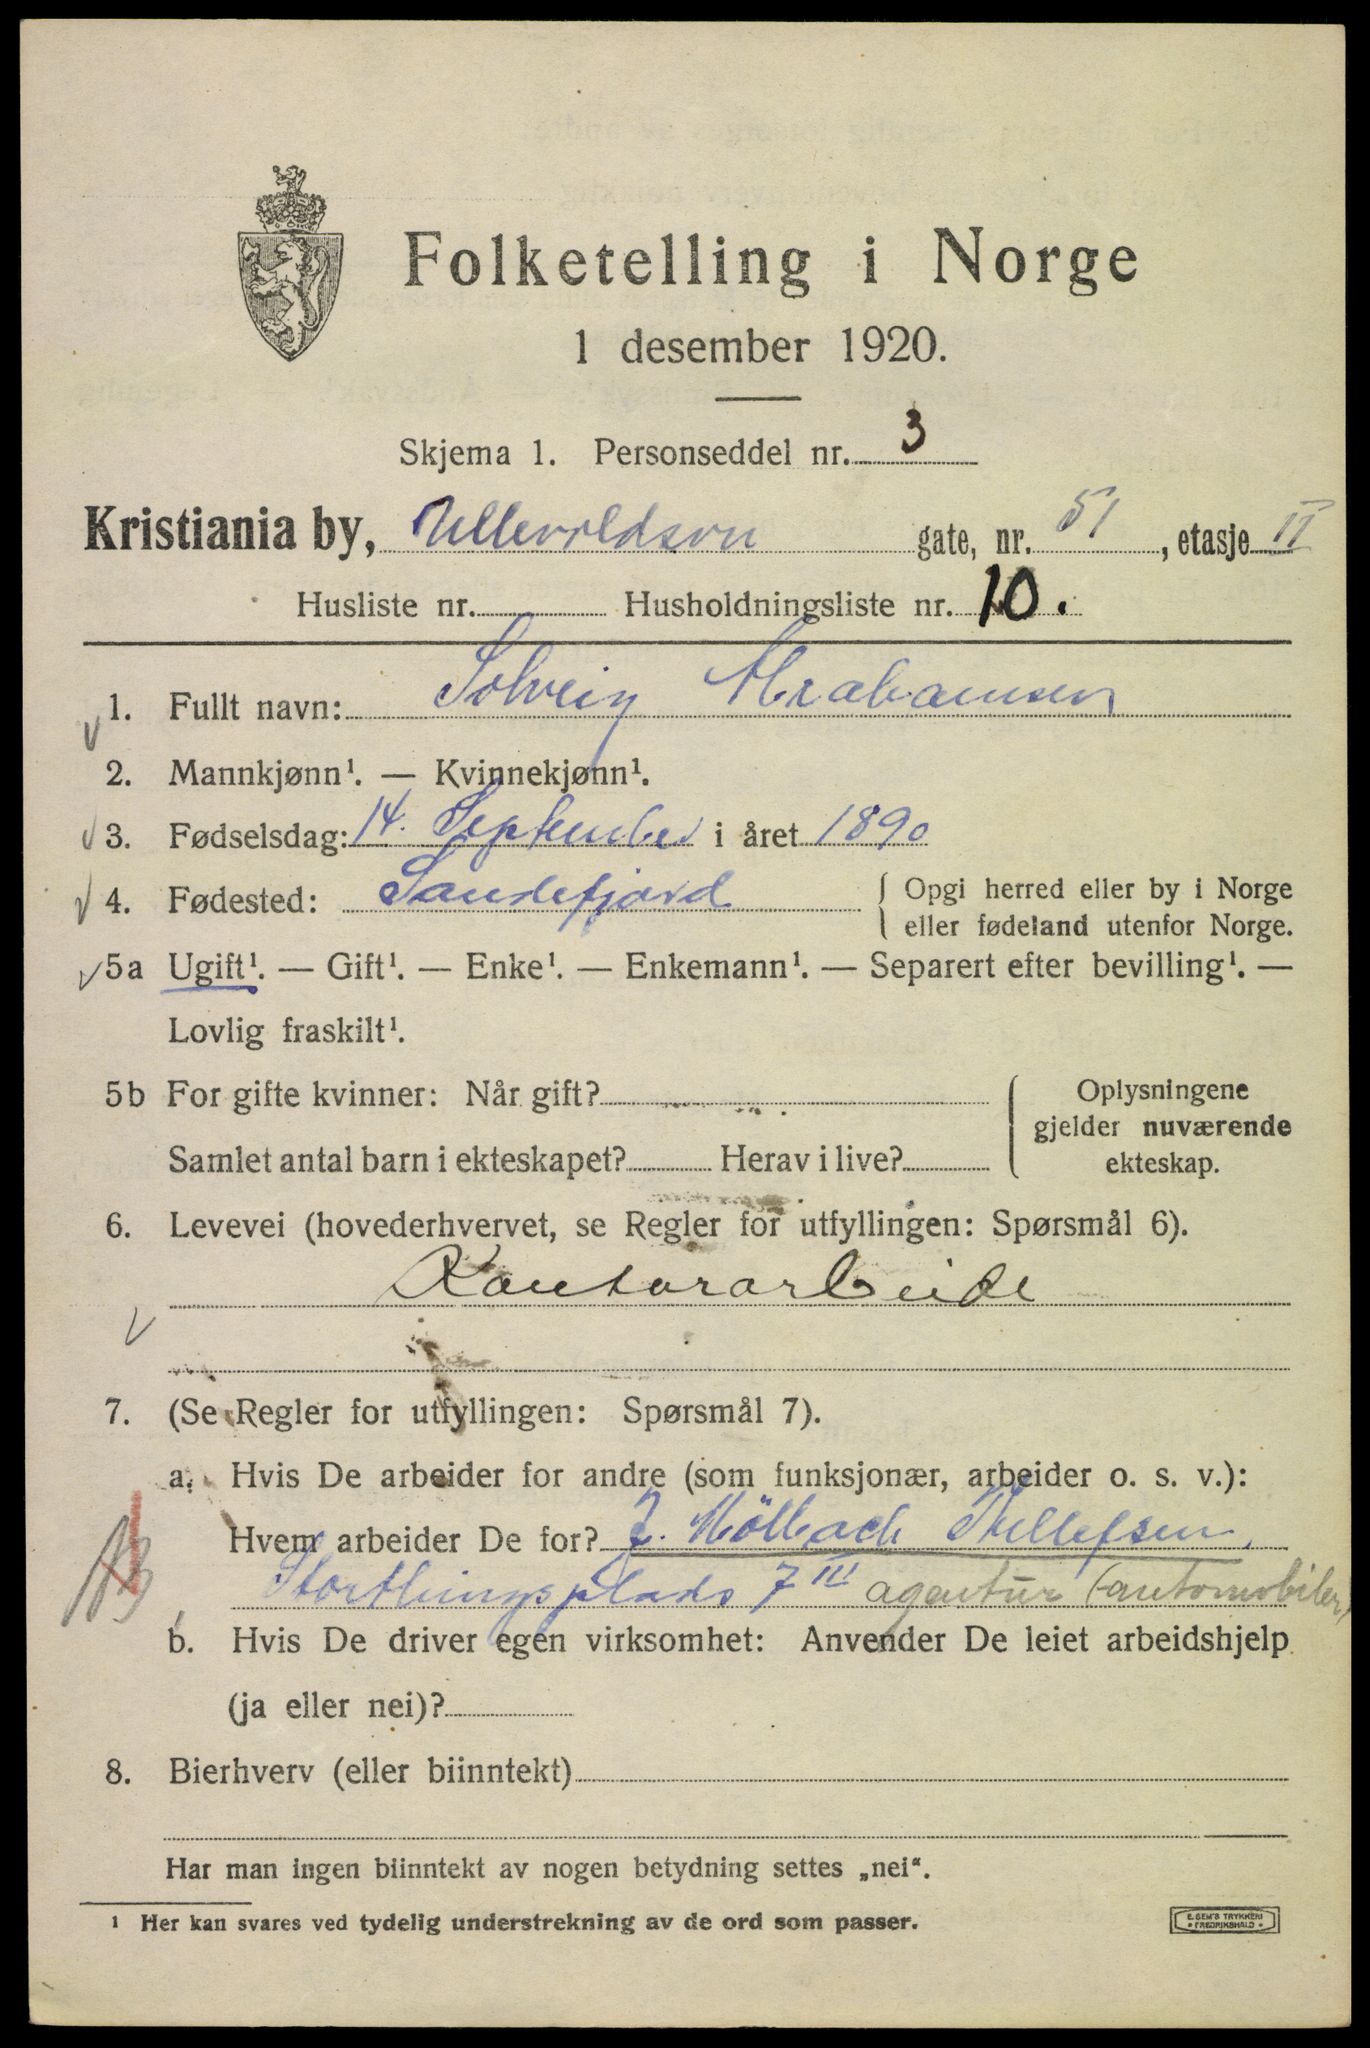 Folketelling i Norge
1 desember 1920.
Skjema 1. Personseddel nr. 3
Kristiania by, Ullevoldsvn gate, nr. 51, etasje II
Husliste nr. Husholdningsliste nr. 10.
1. Fullt navn: Solveig Abrahamsen
2. Mannkjønn¹. — Kvinnekjønn¹.
3. Fødselsdag: 14. September i året 1890
4. Fødested: Sandefjord { Opgi herred eller by i Norge
eller fødeland utenfor Norge.
5a Ugift¹. — Gift¹. — Enke¹. — Enkemann¹. — Separert efter bevilling¹. —
Lovlig fraskilt¹.
5b For gifte kvinner: Når gift?
Samlet antal barn i ekteskapet? Herav i live?
Oplysningene
gjelder nuværende
ekteskap.
6. Levevei (hovederhvervet, se Regler for utfyllingen: Spørsmål 6).
Kontorarbeide
7. (Se Regler for utfyllingen: Spørsmål 7).
a. Hvis De arbeider for andre (som funksjonær, arbeider o. s. v.):
Hvem arbeider De for? J. Mölbach Thellefsen,
Storthingsplads 7 III agentur (automobiler)
b. Hvis De driver egen virksomhet: Anvender De leiet arbeidshjelp
(ja eller nei)?
8. Bierhverv (eller biinntekt)
Har man ingen biinntekt av nogen betydning settes „nei“.
¹ Her kan svares ved tydelig understrekning av de ord som passer.
E. SEM'S TRYKKERI
FREDRIKSHALD